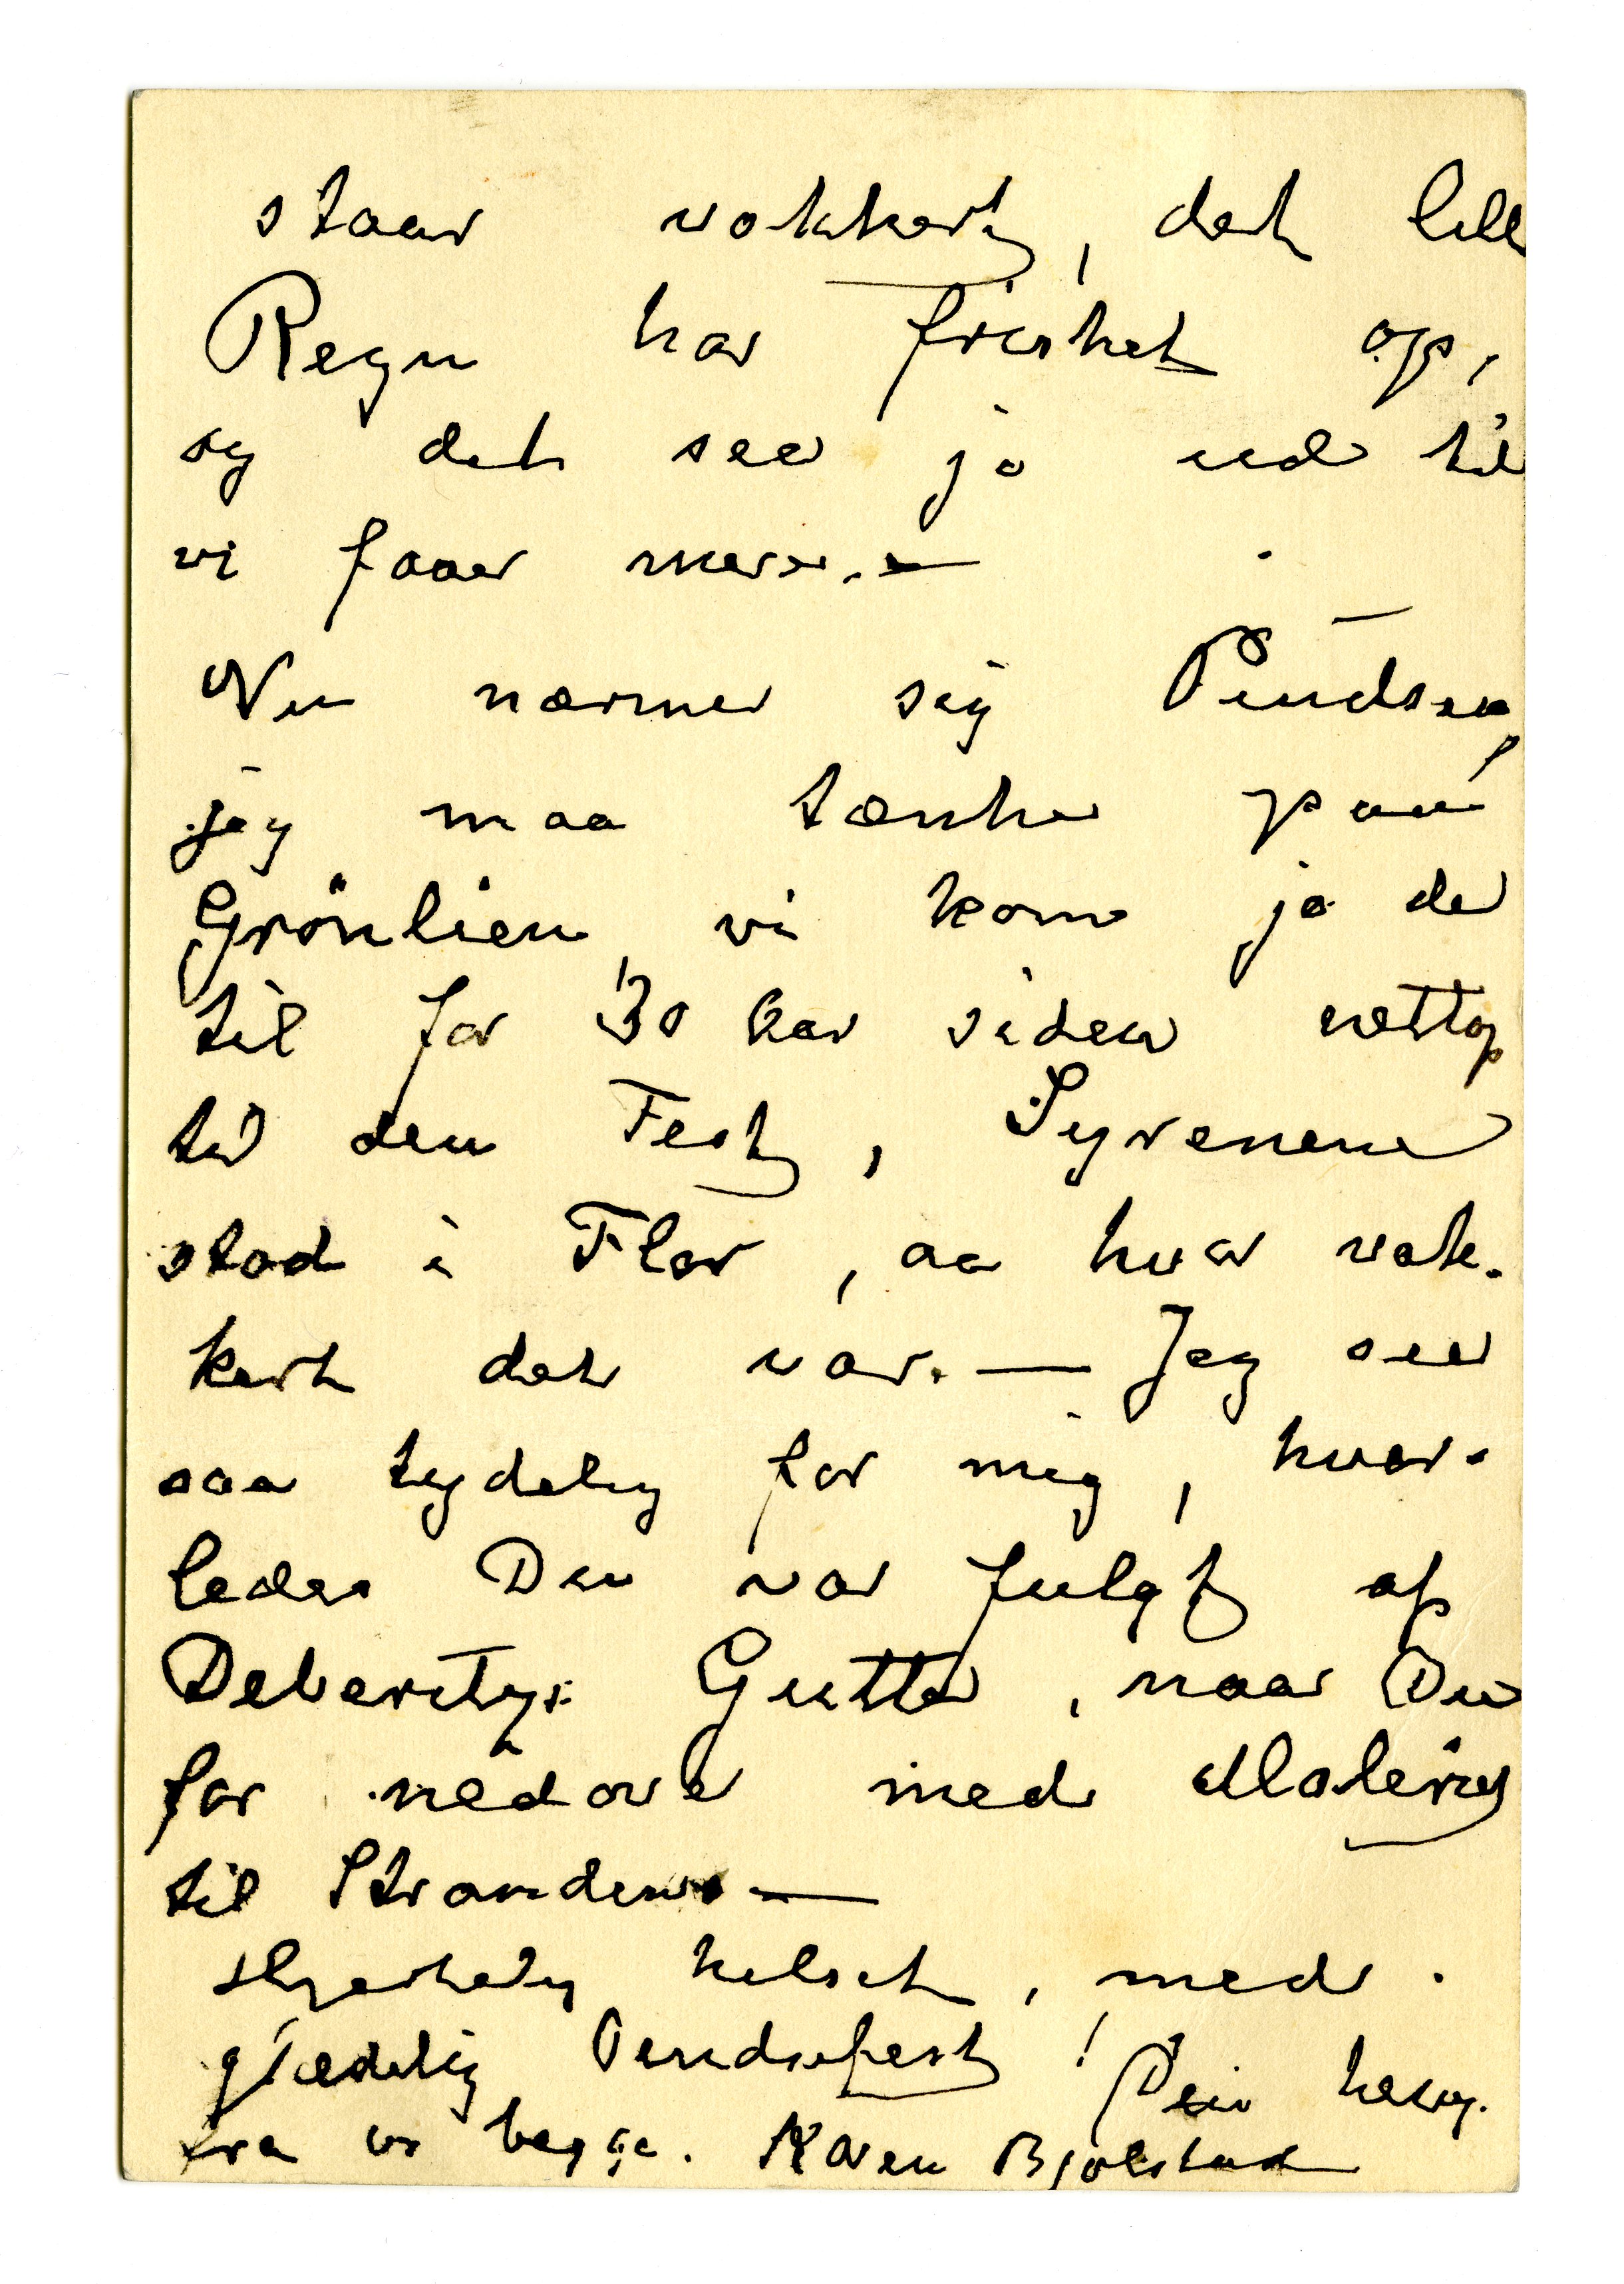 staar vakkert, det lille
Regn har frisket op,
og det seer ja ud til
vi faaer mere. —
Nu nærmer sig Pindsen,
jeg maa tænke paa
Grönlien, vi kom ja der
til for 30 Aar siden nettop
til den Fest, Syrenene
stod i Flor, aa hvor vak-
kert det var. — Jeg seer
saa tydelig for mig, hvor-
ledes Du var fulgt af
Gutter, naar Du
for nedover med Maling
til Stranden. —
Hjertelig hilset, med
glædelig Pindsefest! Din heng.
fra os begge. Karen Bjølstad